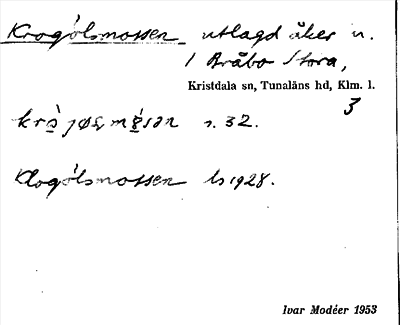 Krogölsmossen utlagd åker u.
1 Bråbo Stora,
Kristdala sn, Tunaläns hd, Klm. l.
3
s. 32.
Klogölsmossen ls 1928.
Ivar Modéer 1953